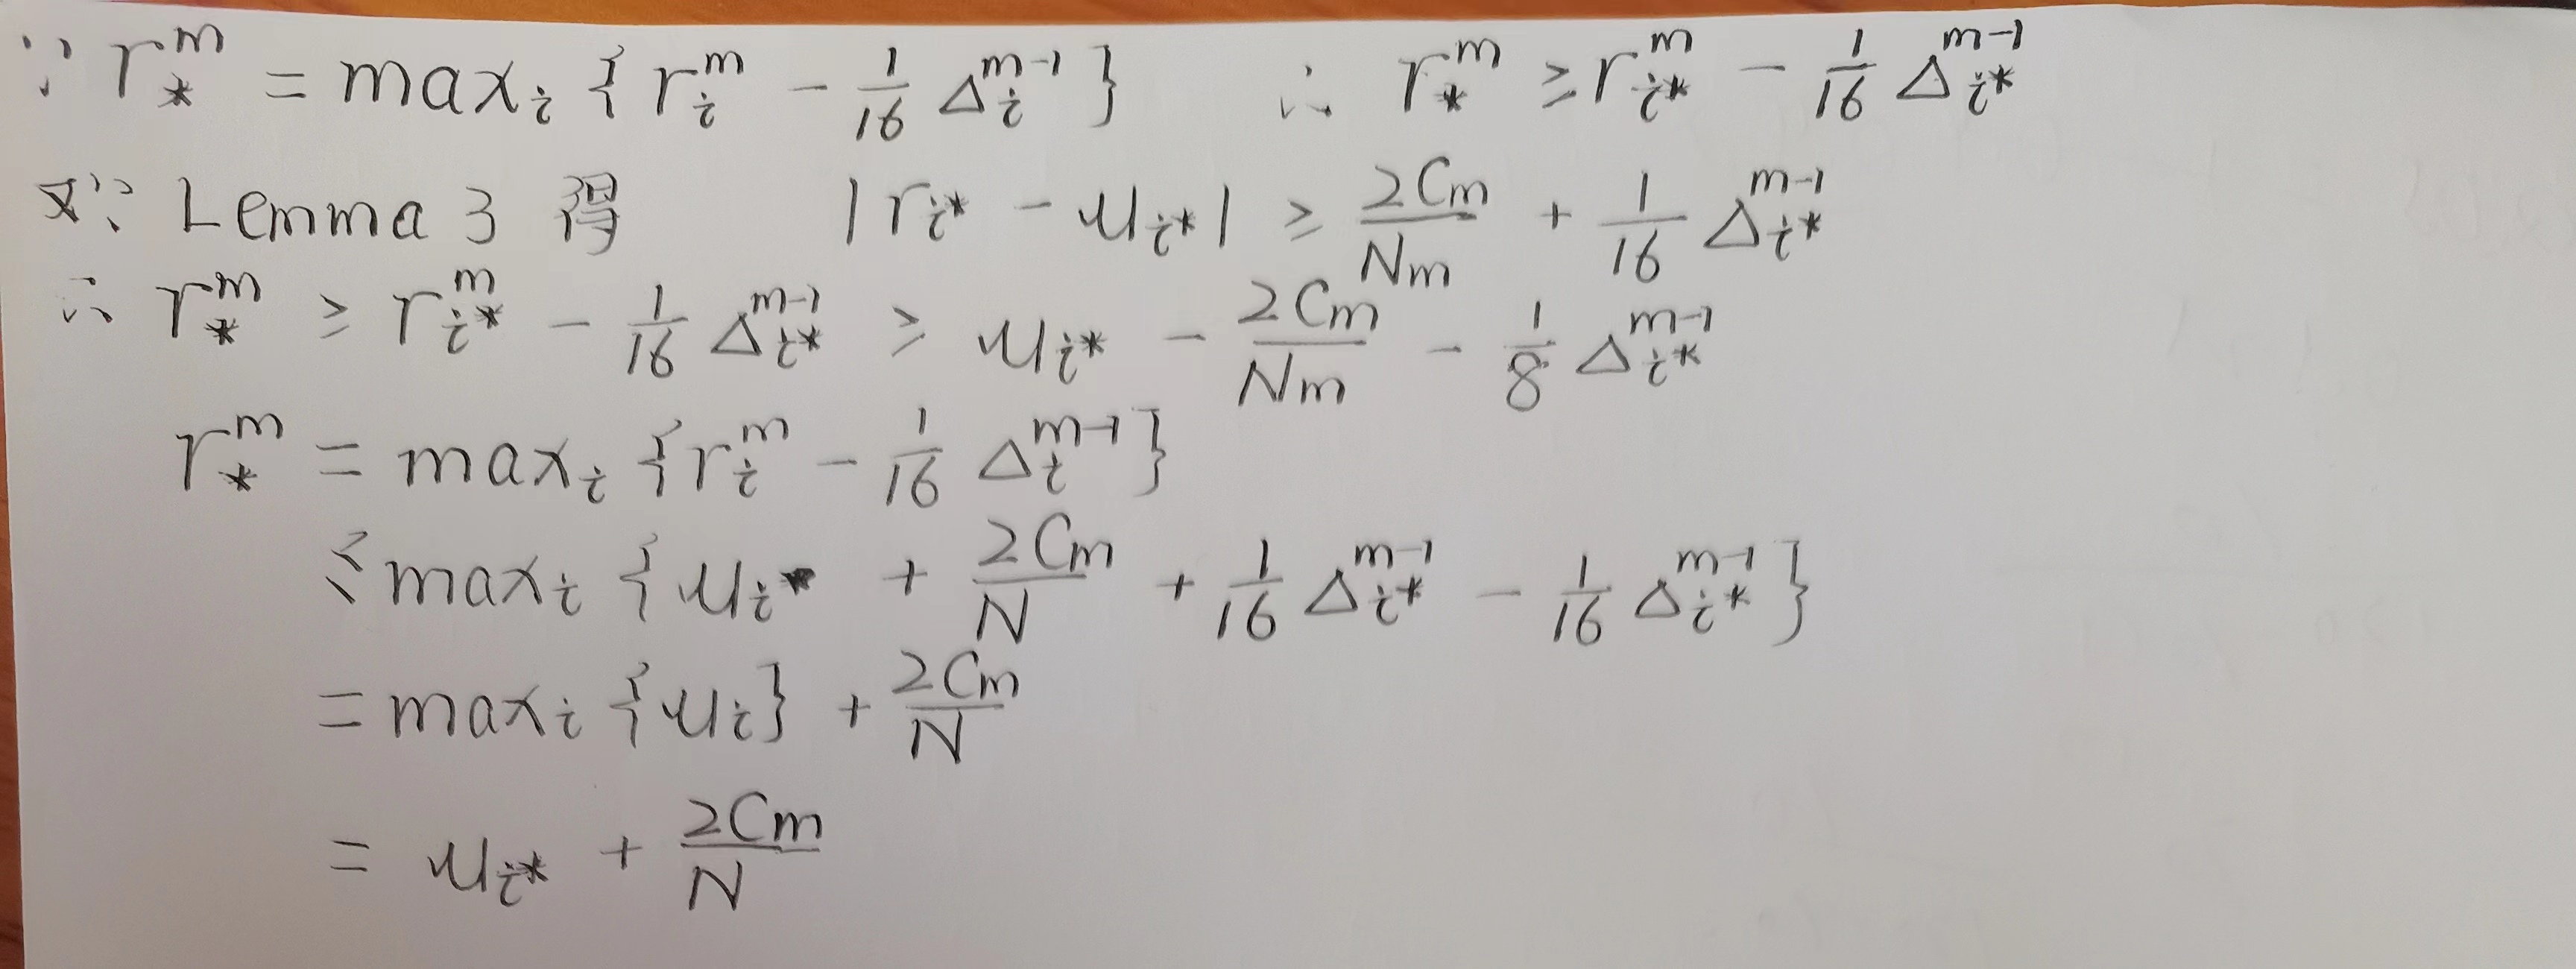 ∵ r_*^m = max_i { r_i^m - 1/16 Δ_i^{m-1} } ∴ r_*^m ≥ r_{i*}^m - 1/16 Δ_{i*}^{m-1}
又∵ Lemma 3 得 |r_{i*} - u_{i*}| ≥ 2C_m/N_m + 1/16 Δ_{i*}^{m-1}
∴ r_*^m ≥ r_{i*}^m - 1/16 Δ_{i*}^{m-1} ≥ u_{i*} - 2C_m/N_m - 1/8 Δ_{i*}^{m-1}
r_*^m = max_i { r_i^m - 1/16 Δ_i^{m-1} }
≤ max_i { u_{i*} + 2C_m/N + 1/16 Δ_{i*}^{m-1} - 1/16 Δ_{i*}^{m-1} }
= max_i { u_i } + 2C_m/N
= u_{i*} + 2C_m/N